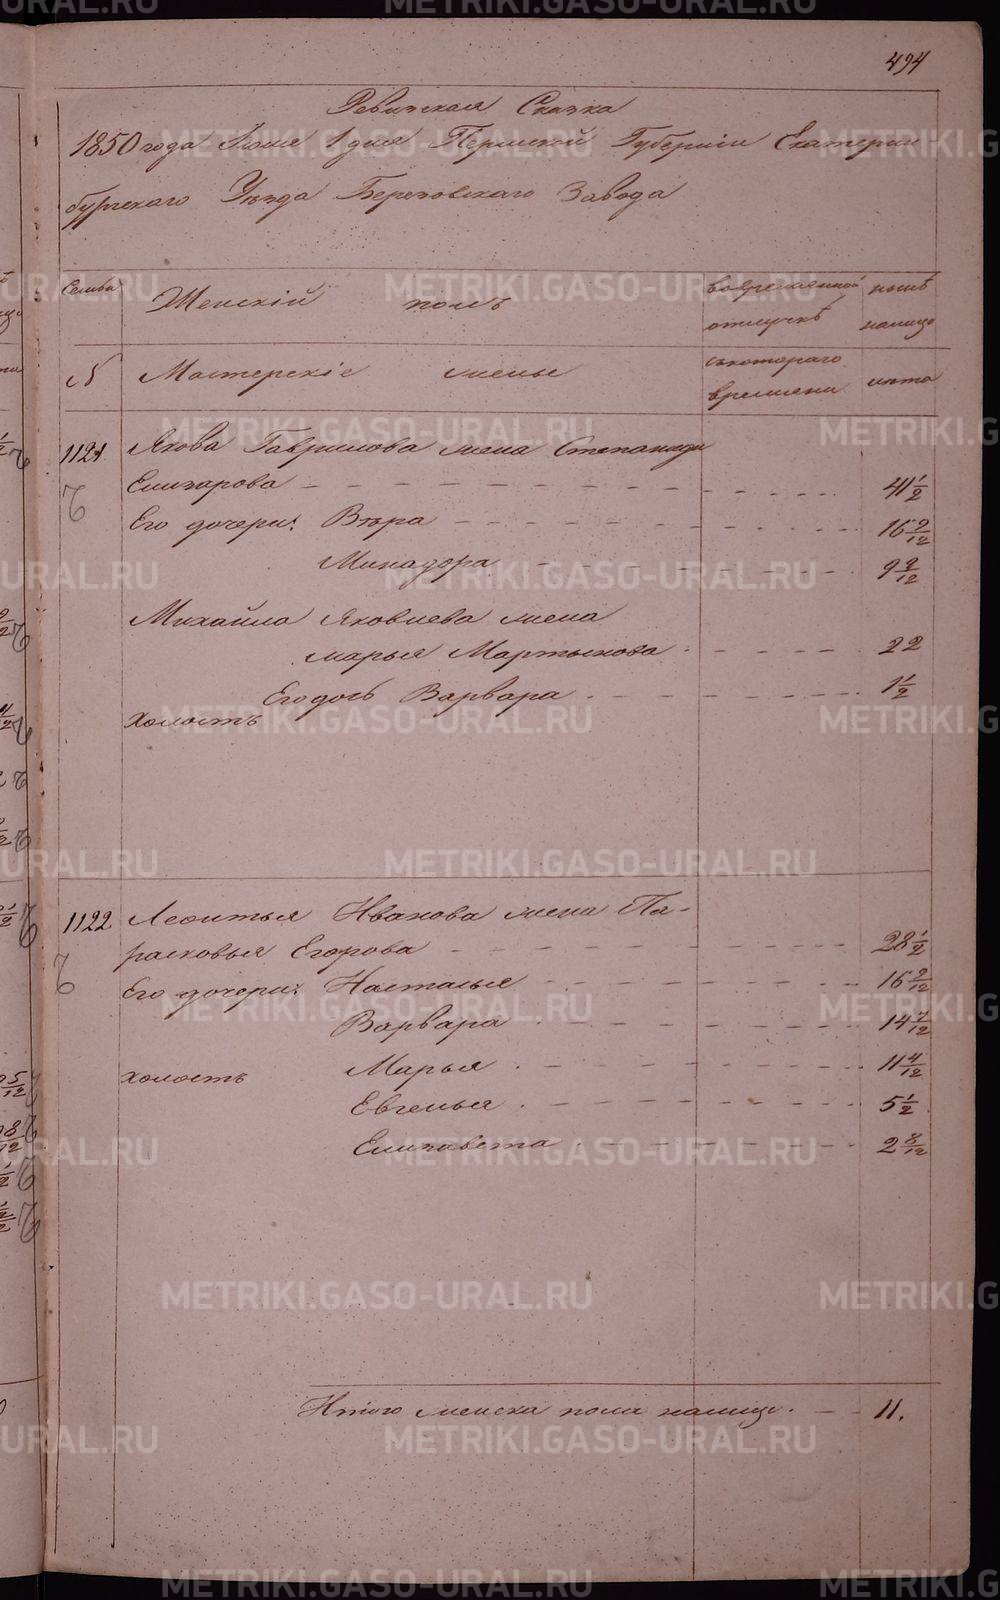 494
Ревизская Сказка
1850 года Июня 1 дня Пермской Губернiи Екатерин
бургскаго Уезда Березовскаго Завода
Семьи Женскiй полъ во временной ныне
отлучкѣ налицо
№ Мастерскiе жены съ котораго
времени лета
1121 Якова Гаврилова жена Степанида
Елизарова 41 1/2
Его дочери: Вѣра 16 2/12
Минадора 9 2/12
Михайла Яковлева жена
Марья Мартынова 22
Его дочь Варвара 1 1/2
холостъ
1122 Леонтья Иванова жена Па-
расковья Егорова 28 1/2
Его дочери: Насталья 16 2/12
Варвара 14 7/12
Марья 11 4/12
холостъ
Евгенья 5 1/2
Елизавета 2 8/12
Итого женска пола налицо 11.
METRIKI.GASO-URAL.RU